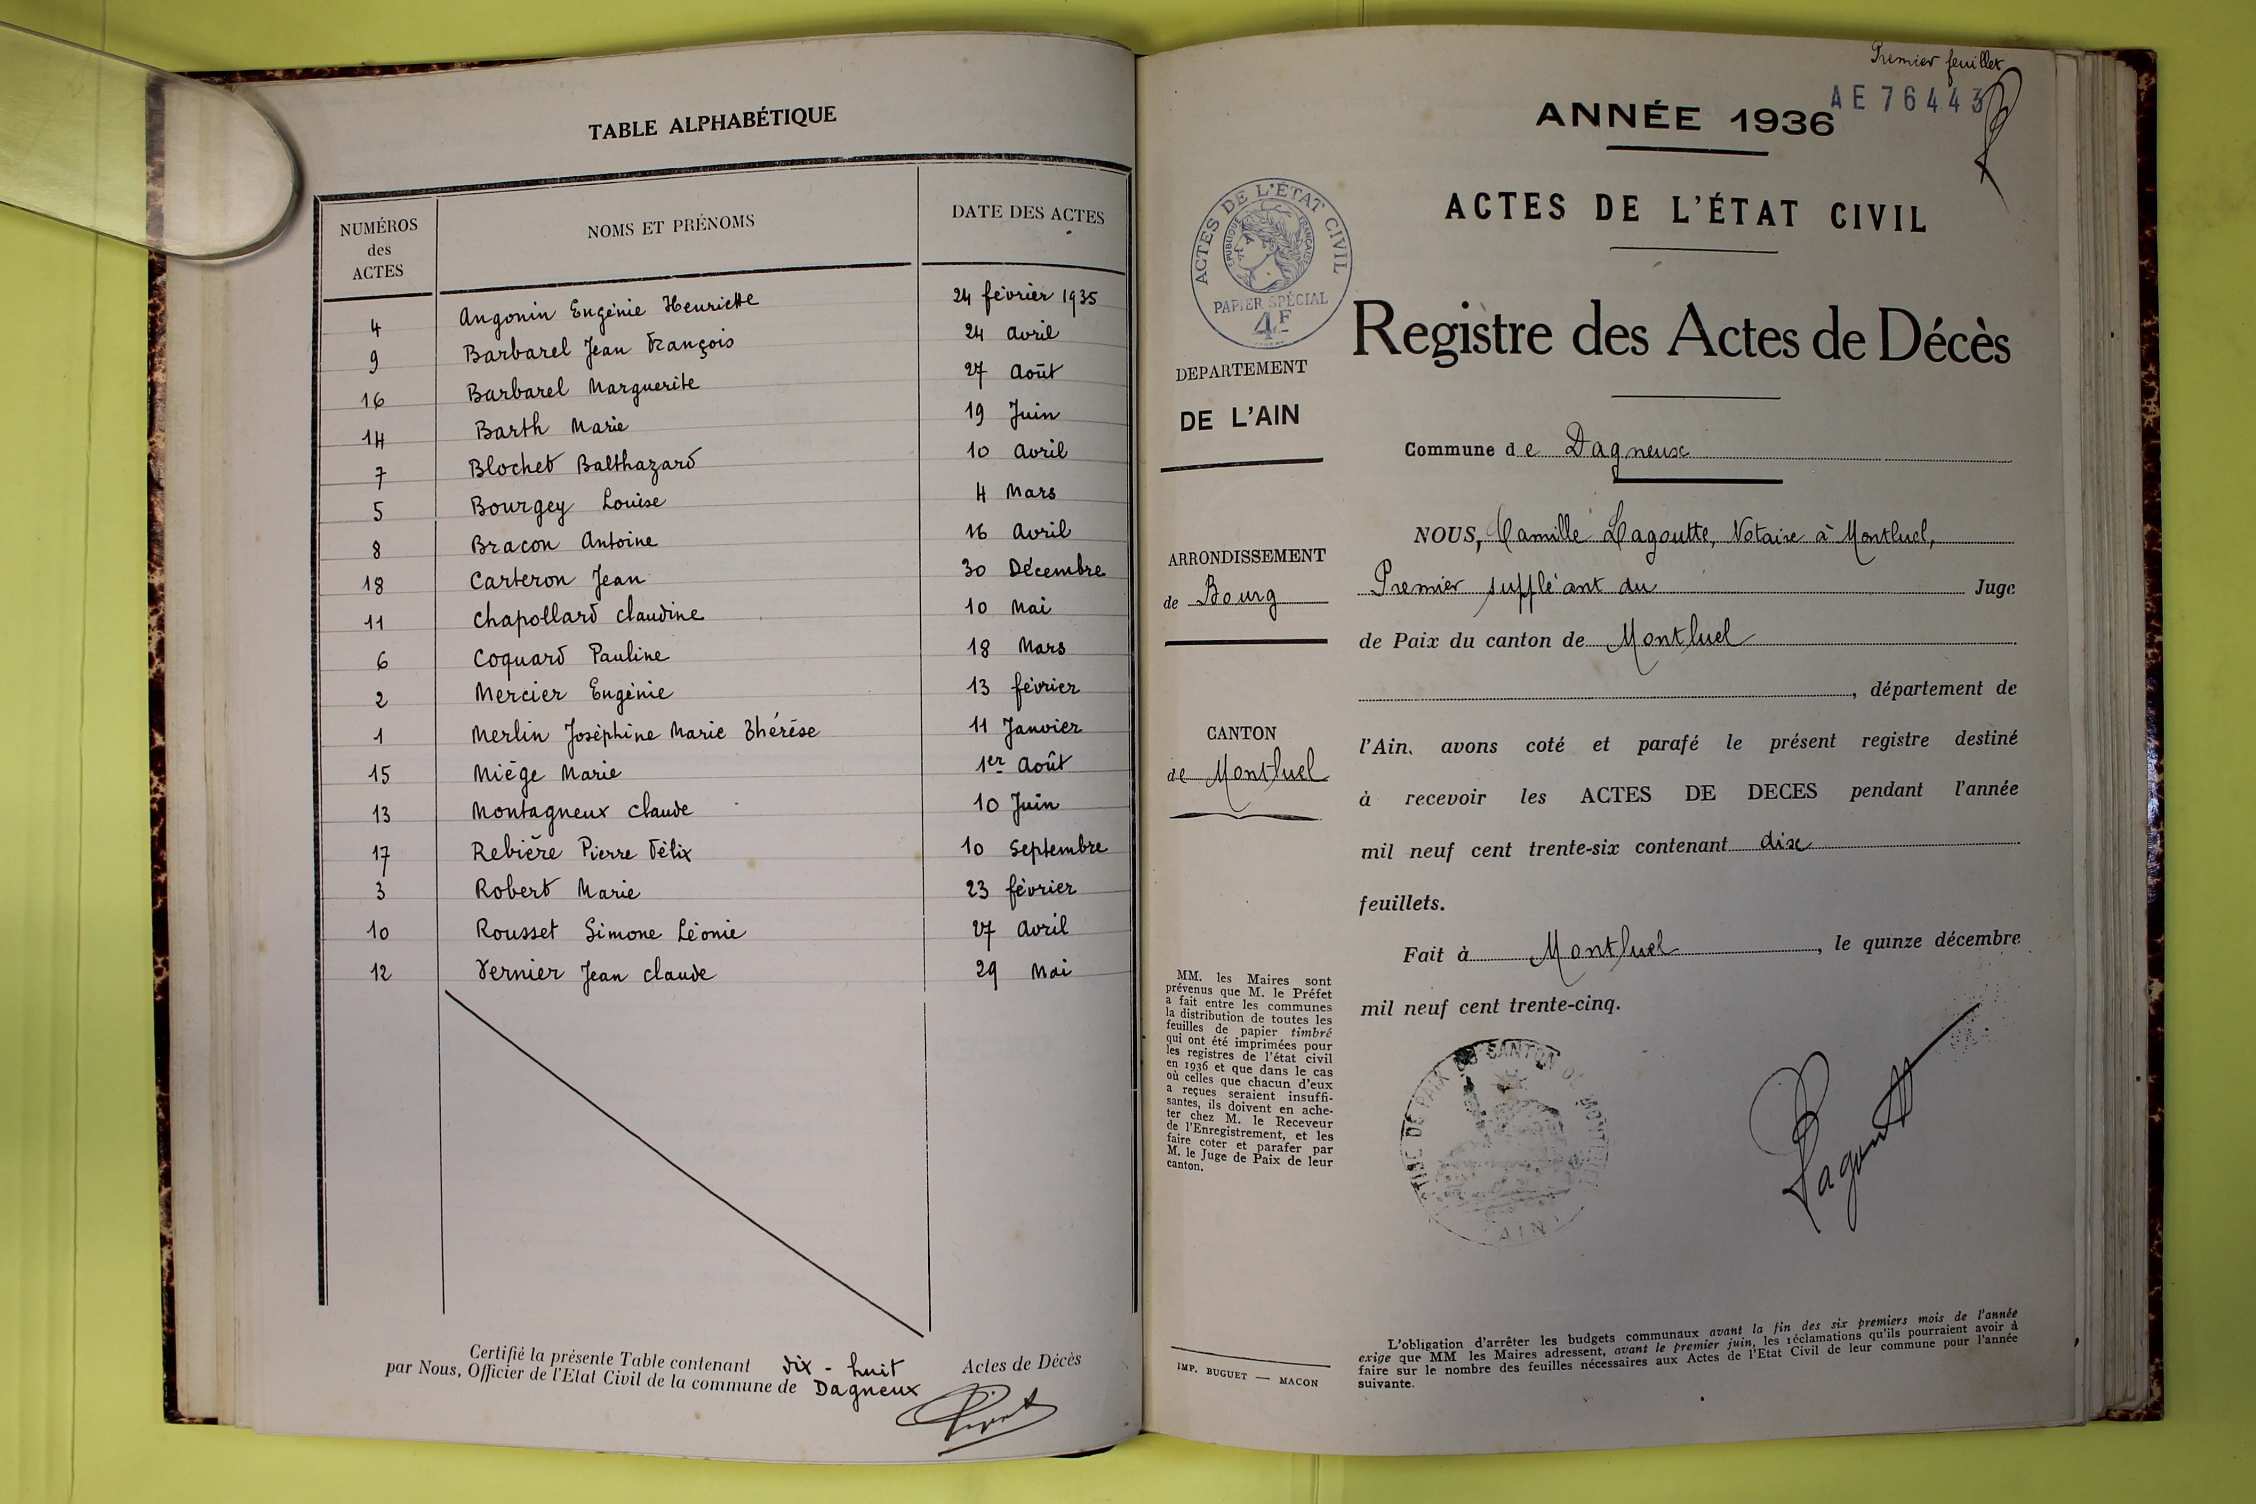 TABLE ALPHABÉTIQUE
NUMÉROS des ACTES
NOMS ET PRÉNOMS
DATE DES ACTES
4 Angonin Eugénie Henriette 24 février 1935
9 Barbarel Jean François 24 avril
16 Barbarel Marguerite 27 Août
14 Barth Marie 19 Juin
7 Blochet Balthazard 10 avril
5 Bourgey Louise 4 Mars
8 Bracon Antoine 16 avril
18 Carteron Jean 30 Décembre
11 Chapollard Claudine 10 Mai
6 Coquard Pauline 18 Mars
2 Mercier Eugénie 13 février
1 Merlin Joséphine Marie Thérèse 11 Janvier
15 Miège Marie 1er Août
13 Montagneux Claude 10 Juin
17 Rebière Pierre Félix 10 Septembre
3 Robert Marie 23 février
10 Rousset Simone Léonie 27 avril
12 Vernier Jean Claude 29 Mai
Certifié la présente Table contenant dix-huit Actes de Décès
par Nous, Officier de l'Etat Civil de la commune de Dagneux
Premier feuillet
AE 76443
ANNÉE 1936
ACTES DE L'ÉTAT CIVIL
ACTES DE L'ÉTAT CIVIL
RÉPUBLIQUE FRANÇAISE
PAPIER SPÉCIAL
4F
Registre des Actes de Décès
DEPARTEMENT
DE L'AIN
ARRONDISSEMENT
de Bourg
CANTON
de Montluel
MM. les Maires sont
prévenus que M. le Préfet
a fait entre les communes
la distribution de toutes les
feuilles de papier timbré
qui ont été imprimées pour
les registres de l'état civil
en 1936 et que dans le cas
où celles que chacun d'eux
a reçues seraient insuffi-
santes, ils doivent en ache-
ter chez M. le Receveur
de l'Enregistrement, et les
faire coter et parafer par
M. le Juge de Paix de leur
canton.
IMP. BUGUET — MACON
Commune de Dagneux
NOUS, Camille Lagoutte, Notaire à Montluel,
Premier suppléant du Juge
de Paix du canton de Montluel
, département de
l'Ain, avons coté et parafé le présent registre destiné
à recevoir les ACTES DE DECES pendant l'année
mil neuf cent trente-six contenant dix
feuillets.
Fait à Montluel, le quinze décembre
mil neuf cent trente-cinq.
DE PAIX DU CANTON DE MONTLUEL
AIN
Lagoutte
L'obligation d'arrêter les budgets communaux avant la fin des six premiers mois de l'année
exige que MM les Maires adressent, avant le premier juin, les réclamations qu'ils pourraient avoir à
faire sur le nombre des feuilles nécessaires aux Actes de l'Etat Civil de leur commune pour l'année
suivante.